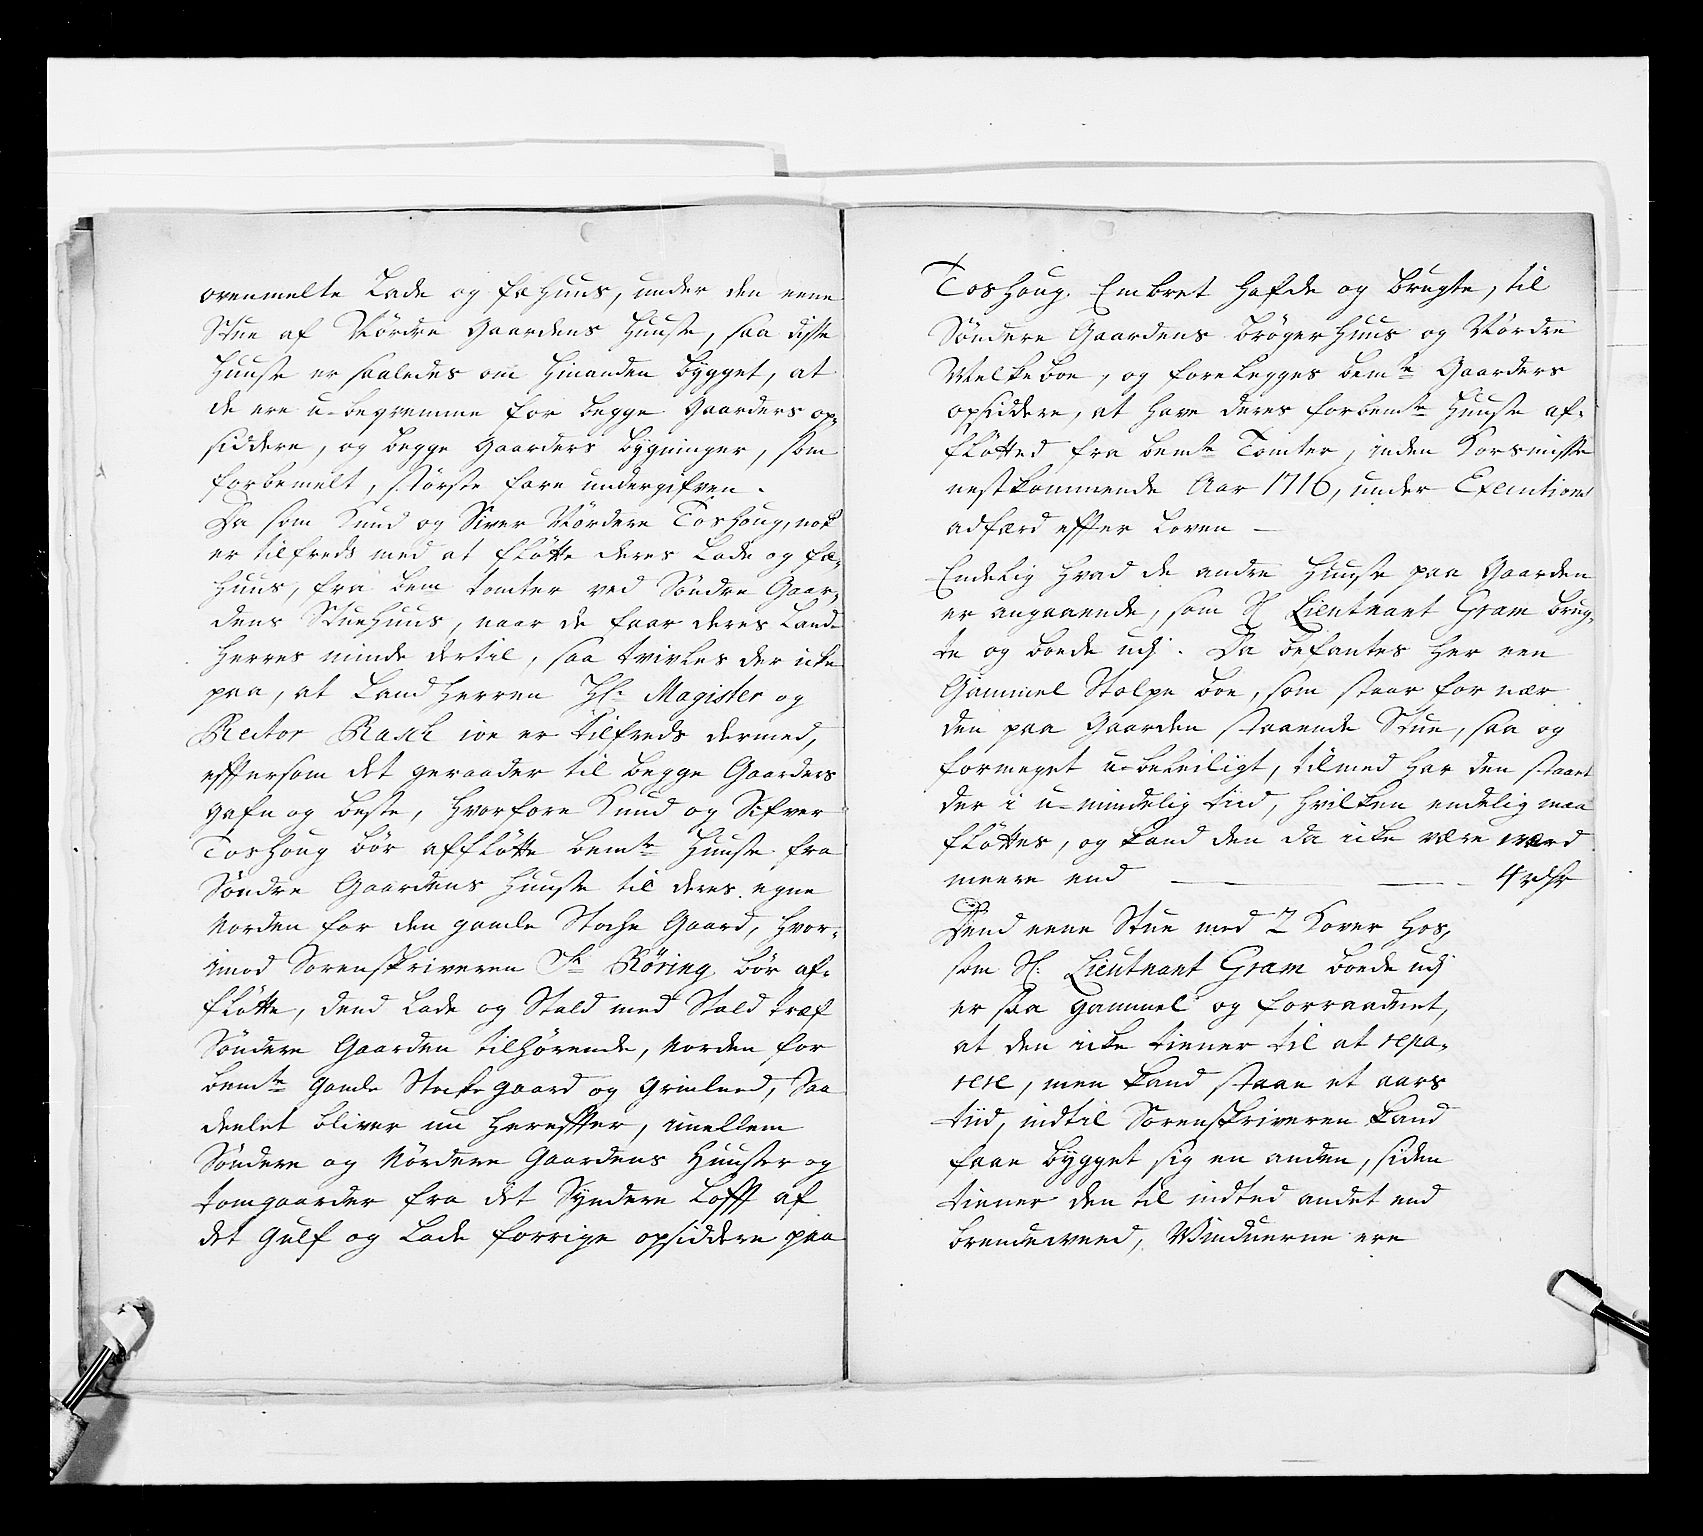 ovenmelte Lade og Fæhuus, under den eene
Stue af Nördre Gaardens Huuse, saa disse
Huuse er saaledes om hinanden bÿgget, at
de ere u-beqvemme for begge Gaarders op-
siddere, og begge Gaarders bÿgninger, som
forbemelt, Störste fare undergifven.
Da som Knud og Siver Nördere Toshoug, nok
er tilfreds med at flötte deres Lade og Fæ-
huus, fra bem tomter ved Söndre Gaar-
dens Stuehuus, naar de faar deres Land
herres minde dertil, saa tvivles der icke
paa, at Landherren Hr. Magister og
Rector Rasch joe er tilfreds dermed,
effter som det geraader til begge Gaarders
gafn og beste, hvorfore Knud og Sifver
Toshoug bör afflötte bemte Huuse fra
Söndre Gaardens Huuse til deres egne
Norden for den gamle Stoche Gaard, hvor-
imod Sorenskriveren Sr Röring bör af-
flötte, dend Lade og Stald med Stald træf
Söndere Gaarden tilhörende, Norden for
bemte gamle Stocke gaard og Grinled, Saa
deelet bliver nu hereffter, imellem
Söndere og Nördere Gaardens Huuser og
tomgaarder fra det Syndere Lofft af
det Gulf og Lade forrige opsiddere paa
Toshoug. Embret hafde og brugte, til
Söndere Gaardens brögerhuus og Nördre
Melkeboe, og forelegges bemte Gaarders
opsiddere, at have deres forbemte Huuse af-
flötted fra bemte Tomter, inden Korsmisse
nestkommende Aar 1716, under Executions
adfærd effter Loven —
Endelig hvad de andre Huuse paa Gaarden
er angaaende, som Sl Lieutnant Gram brug-
te og boede udj. Da befantes her een
Gammel Stolpe boe, som staar for nær
den paa Gaarden staaende Stue, saa og
formeget u-beleiligt, tilmed har den staaet
der i u-mindelig tiid, hvilken endelig maa
flöttes, og kand den da icke være værd
meere end — — 4 rdlr
Dend eene Stue med 2 Kover hos,
som Sl: Lieutnant Gram boede udj
er saa gammel og forraadnet,
at den icke tiener til at repa-
rere, men kand staae et aars
tiid, indtil Sorenskriveren kand
faae bÿgget sig en anden, siden
tiener den til indted andet end
brendeveed, Vinduerne ere